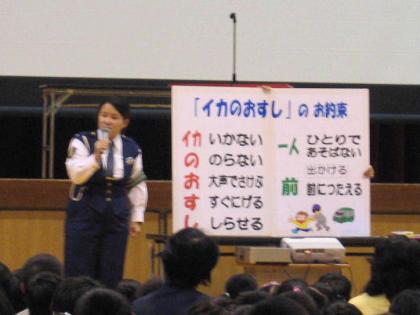 「イカのおすし」の お約束
イカ いかない
の のらない
お 大声でさけぶ
す すぐにげる
し しらせる
一人 ひとりで
あそばない
前 出かける
前につたえる